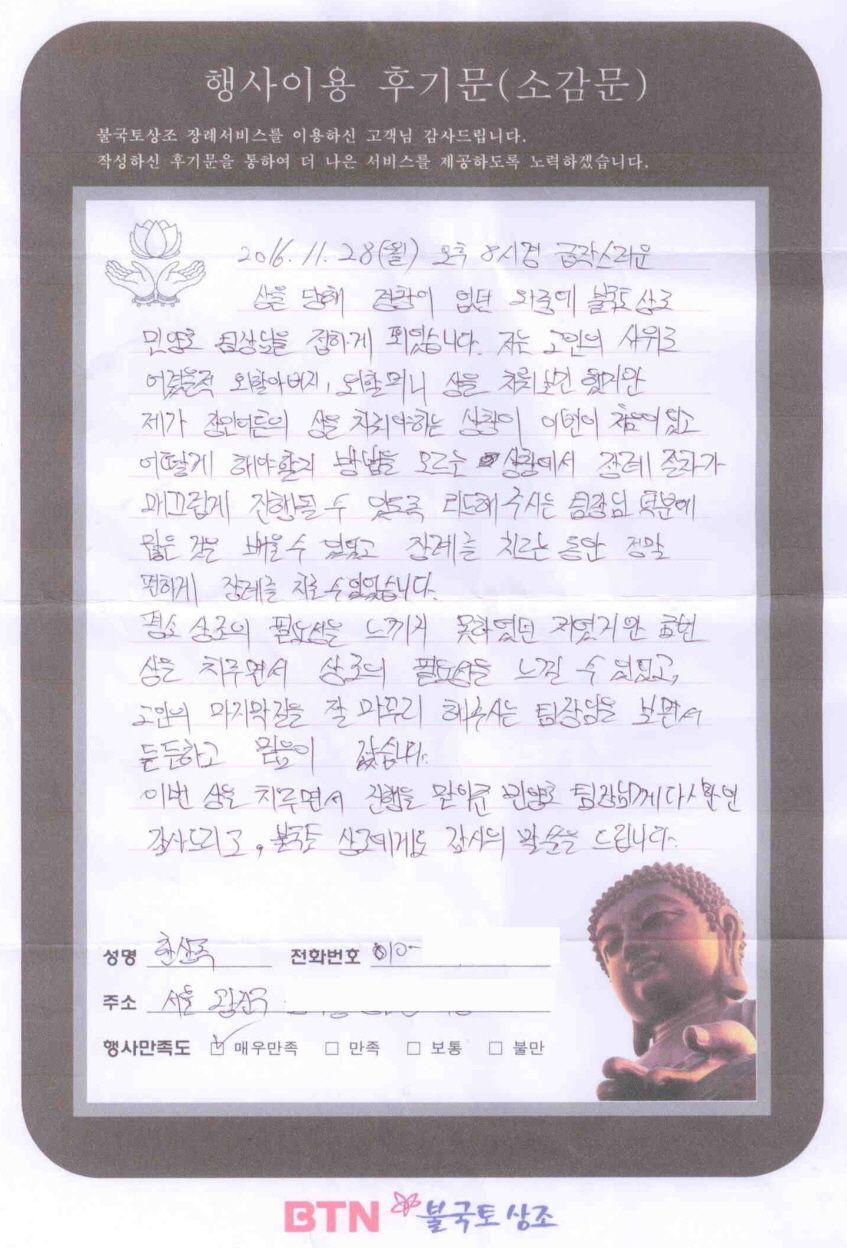 행사이용 후기문(소감문)
불국토상조 장례서비스를 이용하신 고객님 감사드립니다.
작성하신 후기문을 통하여 더 나은 서비스를 제공하도록 노력하겠습니다.
2016. 11. 28(월) 오후 8시경 급작스러운
상을 당해 경황이 없던 와중에 불국토 상조
민영호 팀장님을 접하게 되었습니다. 저는 고인의 사위로
어렸을적 외할아버지, 외할머니 상을 치뤄보긴 했지만
제가 장인어른의 상을 치뤄야하는 상황이 이번이 처음이었고
어떻게 해야할지 방법을 모르는 상황에서 장례 절차가
매끄럽게 진행될 수 있도록 리드해 주시는 팀장님 덕분에
많은 것을 배울 수 있었고 장례를 치르는 동안 정말
편하게 장례를 치를 수 있었습니다.
평소 상조의 필요성을 느끼지 못하였던 저였지만 금번
상을 치루면서 상조의 필요성을 느낄 수 있었고,
고인의 마지막길을 잘 마무리 해주시는 팀장님을 보면서
든든하고 믿음이 갔습니다.
이번 상을 치루면서 진행을 맡아준 민영호 팀장님께 다시한번
감사드리고, 불국토 상조에게도 감사의 말씀을 드립니다.
성명 한상욱 전화번호 010-
주소 서울 광진구
행사만족도 ☑ 매우만족 □ 만족 □ 보통 □ 불만
BTN 불국토상조